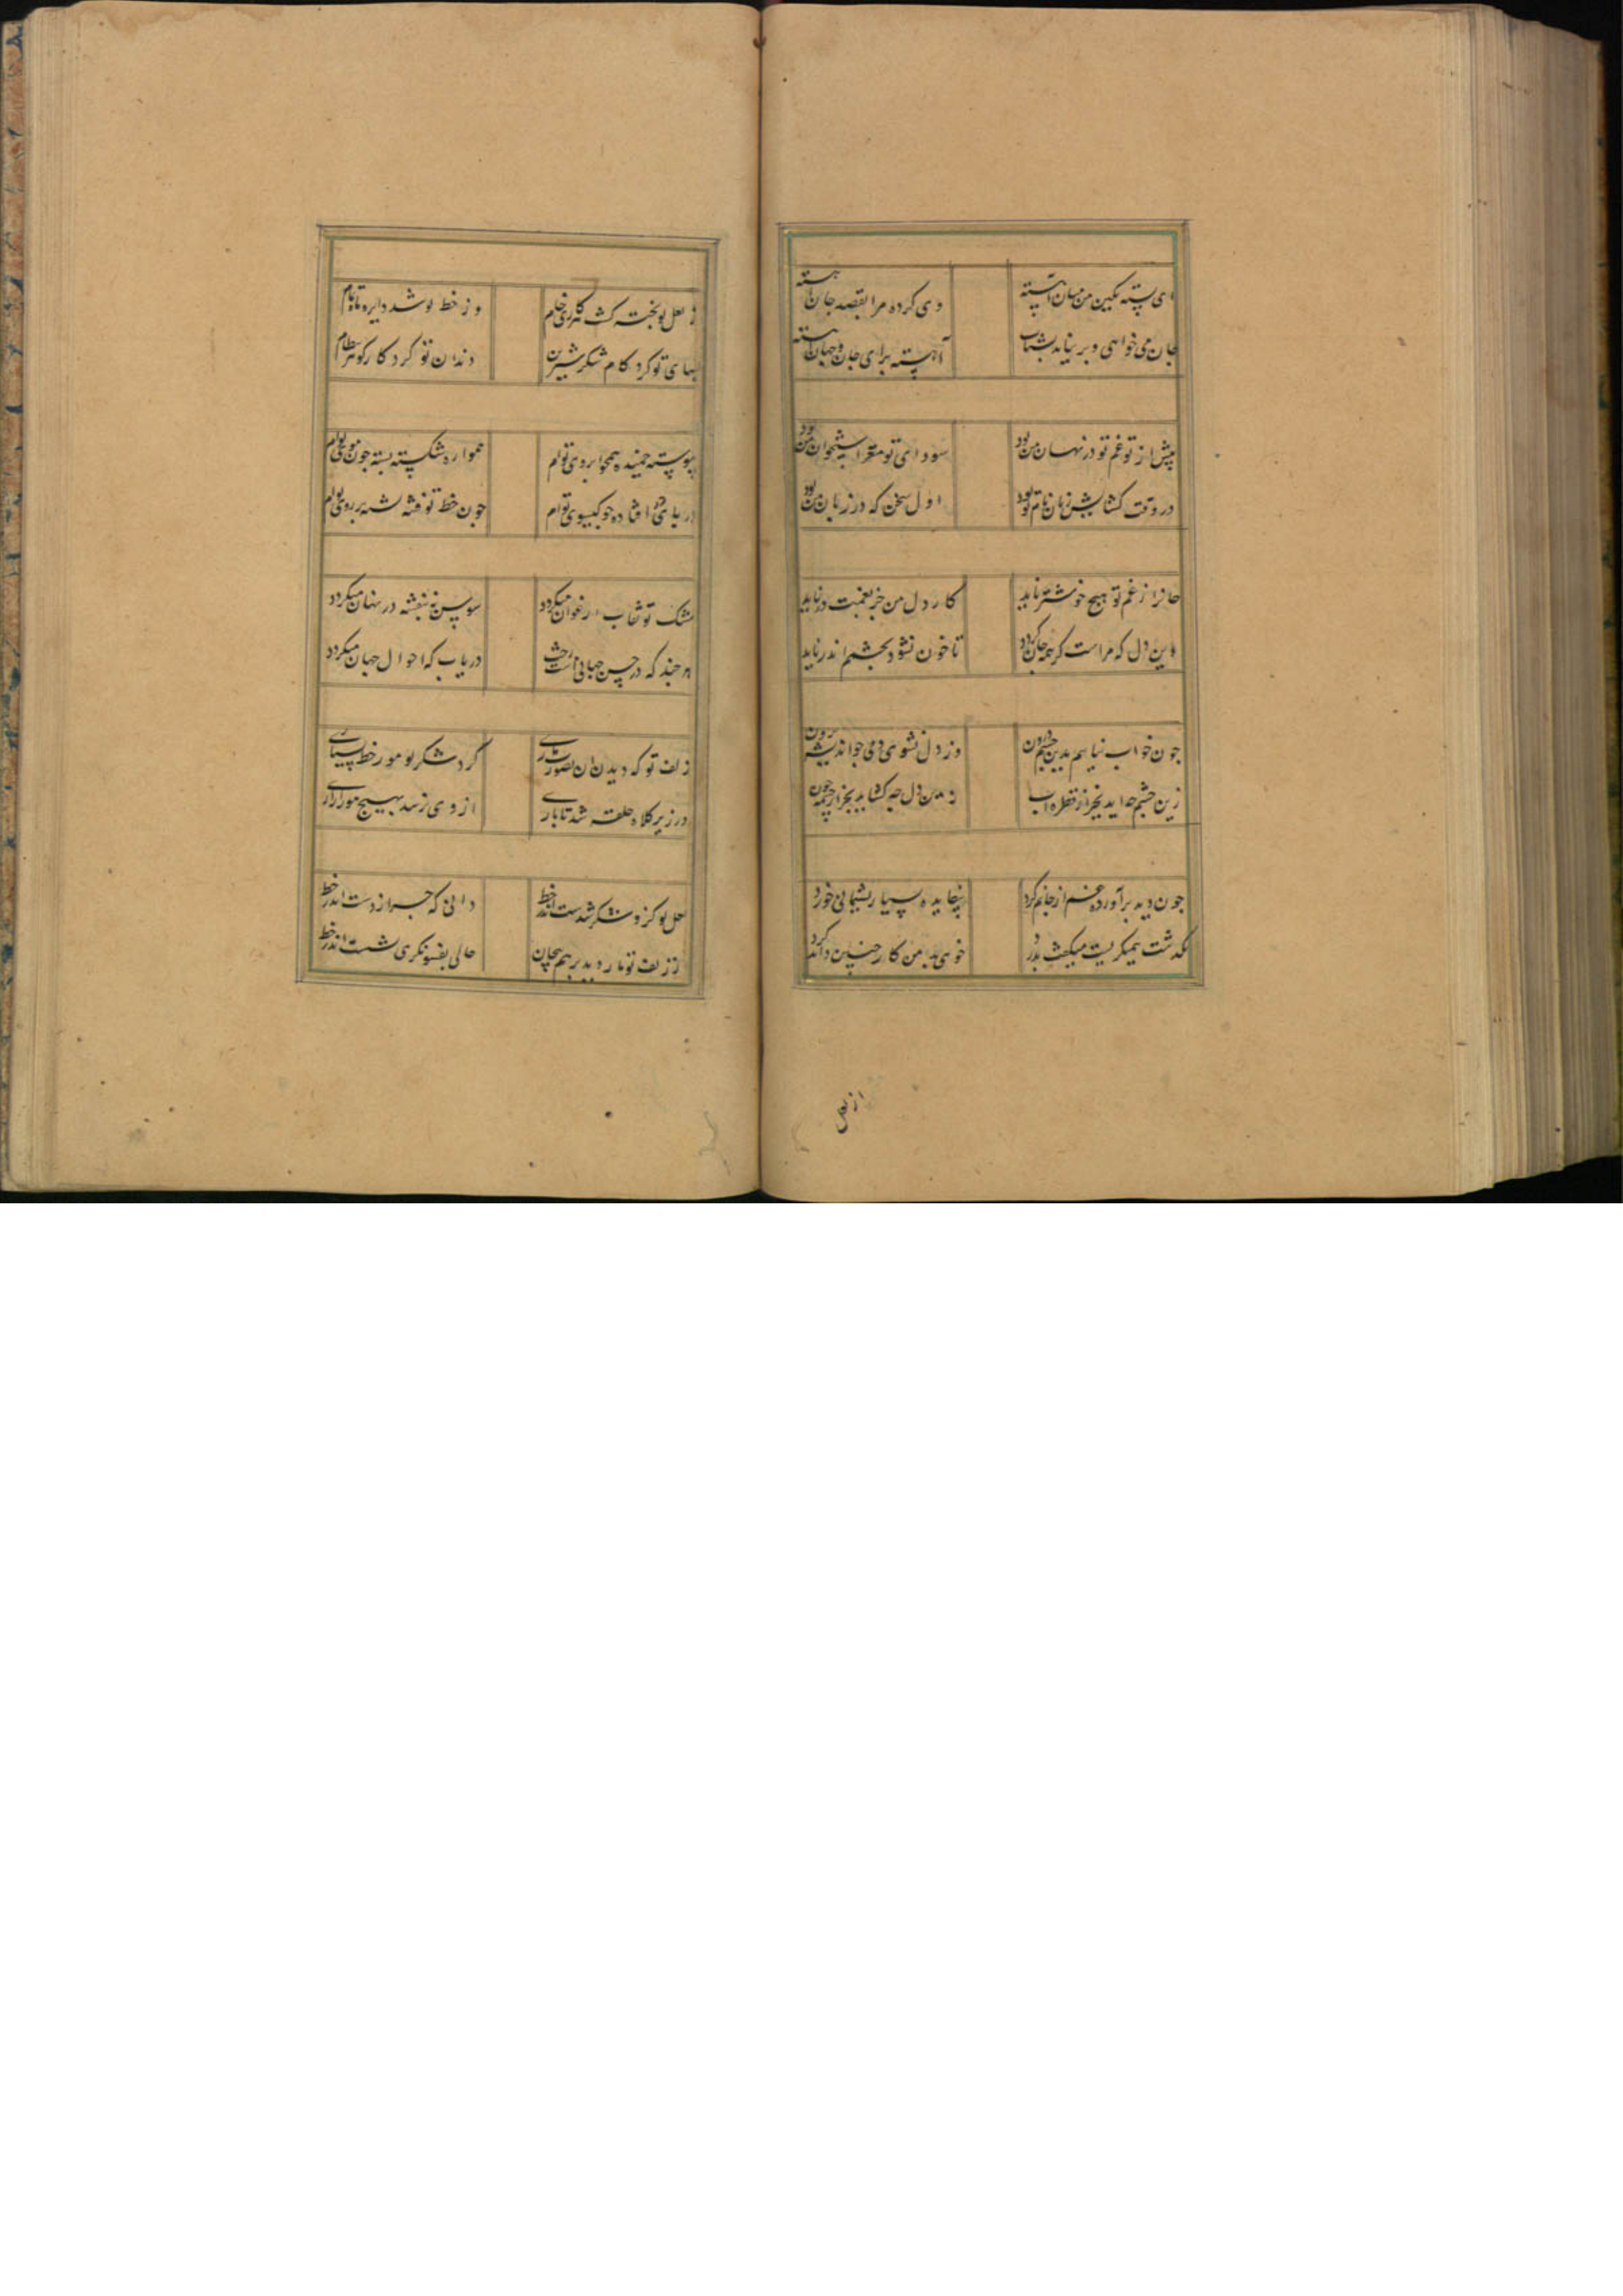 ای پسته بکین من میان آهسته
وی کرده مرا بقصد جان آهسته
جان می خواهی و بر نیاید بشتاب
آهسته برای جان و جهان آهسته
پیش از تو غم تو در نهان من بود
سودای تو مغز استخوان من بود
در وقت کشایش زبان نام تو بود
اول سخن که در زبان من بود
جانرا ز غم تو هیچ خوشتر ناید
کار دل من جز بغمت در ناید
وین دل که مراست کر همه جان کردد
تا خون نشود بچشم اندر ناید
چون خواب نیایم بدین چشم درون
وز دل نشوی دمی چو اندیشه برون
زین چشم چه آید بجز از قطره آب
زین دل چه کشاید بجز از چشمه خون
چون دید برآورده غم از جانم کرد
بسیار پشیمانی خورد
بگذشت همیکریست میکفت بدرد
خوی بد من کار چنین داند کرد
از لعل
ز لعل تو پخته کشت کار می خام
وز خط تو شد دایره ماه تمام
لبهای تو کرد کام شکر شیرین
دندان تو کرد کار کوهر بنظام
پیوسته خمیده همچو ابروی توام
همواره شکسته بسته چون موی توام
در پای افتاده چو کیسوی توام
چون خط تو فتنه شده بر روی توام
مشک تو نقاب ارغوان میکردد
سوسن ز بنفشه در نهان میکردد
هر چند که در حسن جهانی است رخت
دریاب که احوال جهان میکردد
زلف تو که دیدن آن تصور ماری
کرد شکر تو مور خط بسیاری
در زیر کلاه حلقه شد تا باری
از وی نرسد بهیچ مور آزاری
لعل تو کزو شکر شدست اندر خط
دانی که چرا ز دست اندر خط
از زلف تو مار دید بر هم پیچان
حالی بفسونکری شدست اندر خط